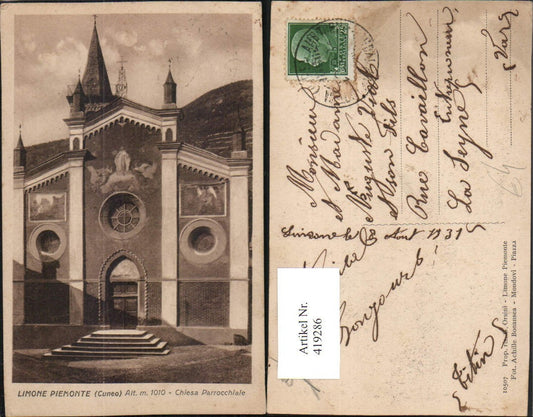 LIMONE PIEMONTE (Cuneo) Alt. m. 1010 - Chiesa Parrocchiale
Monsieur
et Madame
Auguste Vial
et son fils
Rue Cavaillon
La Seyne
(Var)
le 8 Aout 1931
Bonjours
Artikel Nr.
419286
10507 Prop. Orsini - Limone Piemonte
Fot. Achille Bonansea - Mondovì - Piazza